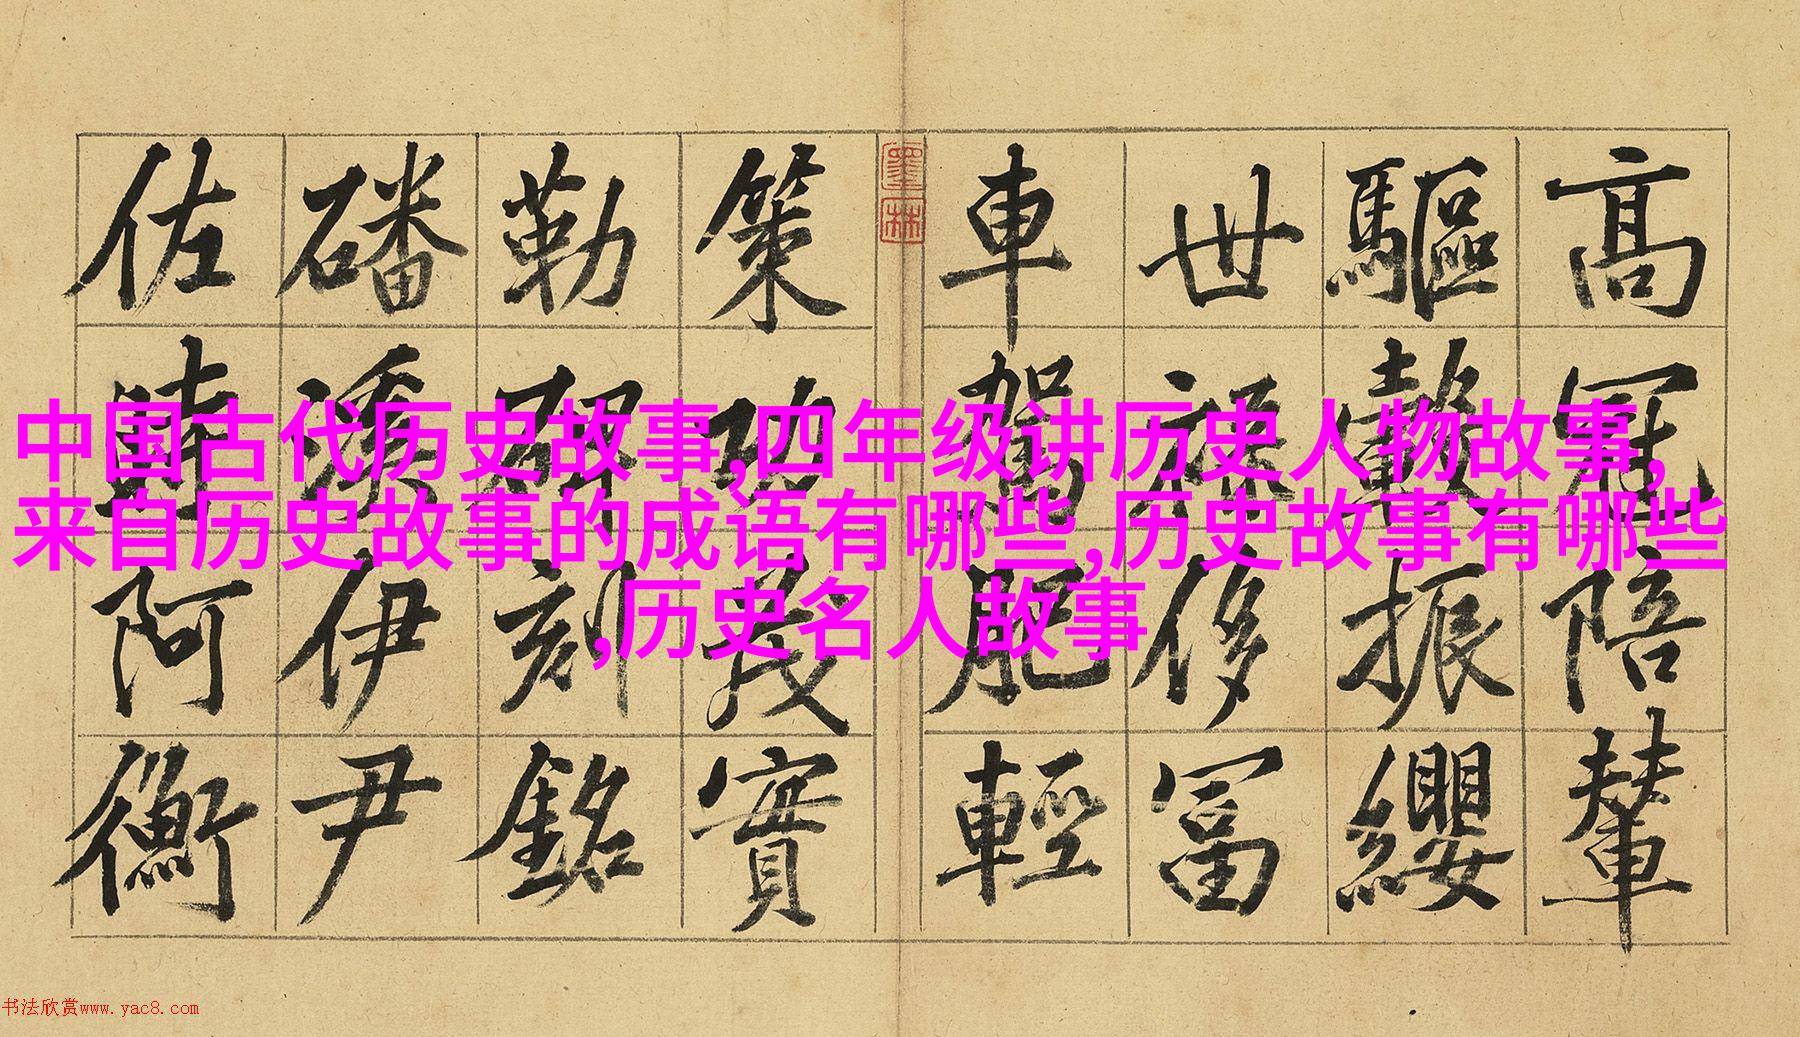 高冠陪輦
驅轂振纓
世祿侈冨
車駕肥輕
墨林
策功茂實
勒碑刻銘
磻溪伊尹
佐時阿衡
中国古代历史故事,四年级讲历史人物故事,
来自历史故事的成语有哪些,历史故事有哪些
,历史名人故事
书法欣赏www.yac8.com